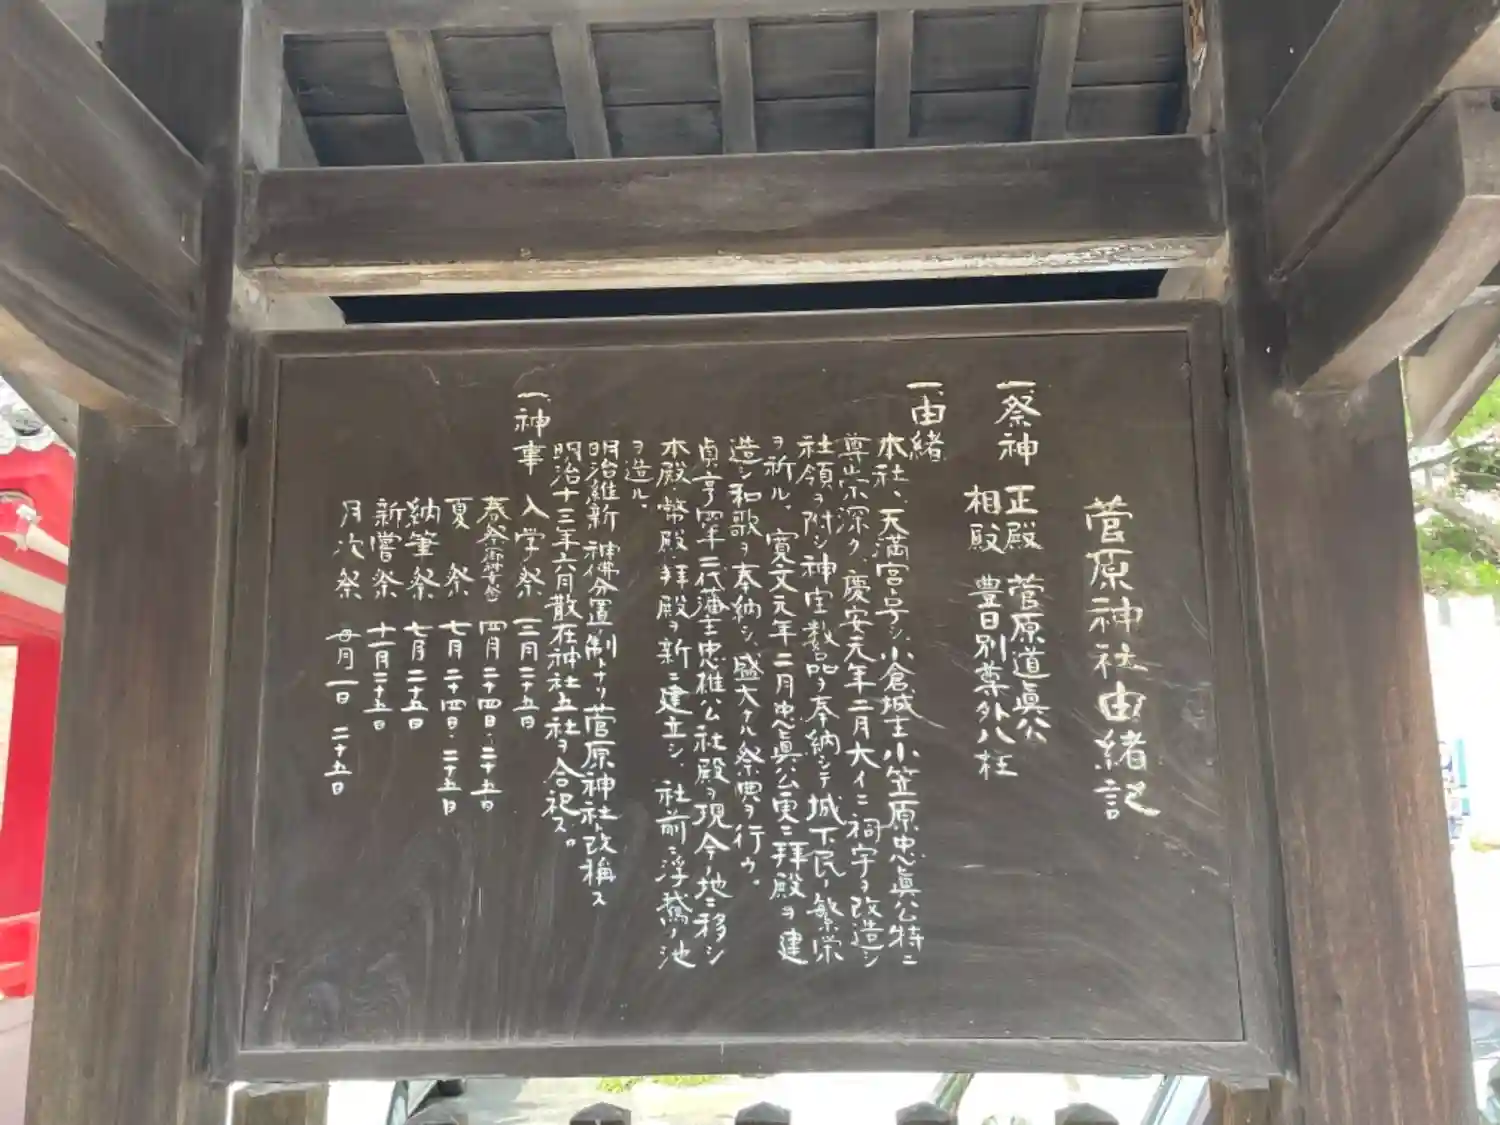 菅原神社由緒記
一、祭神 正殿 菅原道眞公
相殿 豊日別尊外八柱
一、由緒
本社、天満宮ト号シ小倉城主小笠原忠眞公特ニ
尊崇深ク、慶安元年二月大イニ祠宇ヲ改造シ
社領ヲ附シ神宝数品ヲ奉納シテ城下民ノ繁栄
ヲ祈ル。寛文元年二月忠眞公更ニ拝殿ヲ建
造シ和歌ヲ奉納シ、盛大ナル祭典ヲ行ウ。
貞享四年二代藩主忠雄公社殿ヲ現今ノ地ニ移シ
本殿・幣殿・拝殿ヲ新ニ建立シ 社前ニ浮鷲ノ池
ヲ造ル。
明治維新 神佛分置ノ制トナリ菅原神社ト改稱ス
明治十三年六月散在神社五社ヲ合祀ス。
一、神事 入学祭 三月二十五日
春祭 四月二十四日・二十五日
夏祭 七月二十四日・二十五日
納筆祭 七月二十五日
新嘗祭 十一月二十五日
月次祭 毎月一日 二十五日